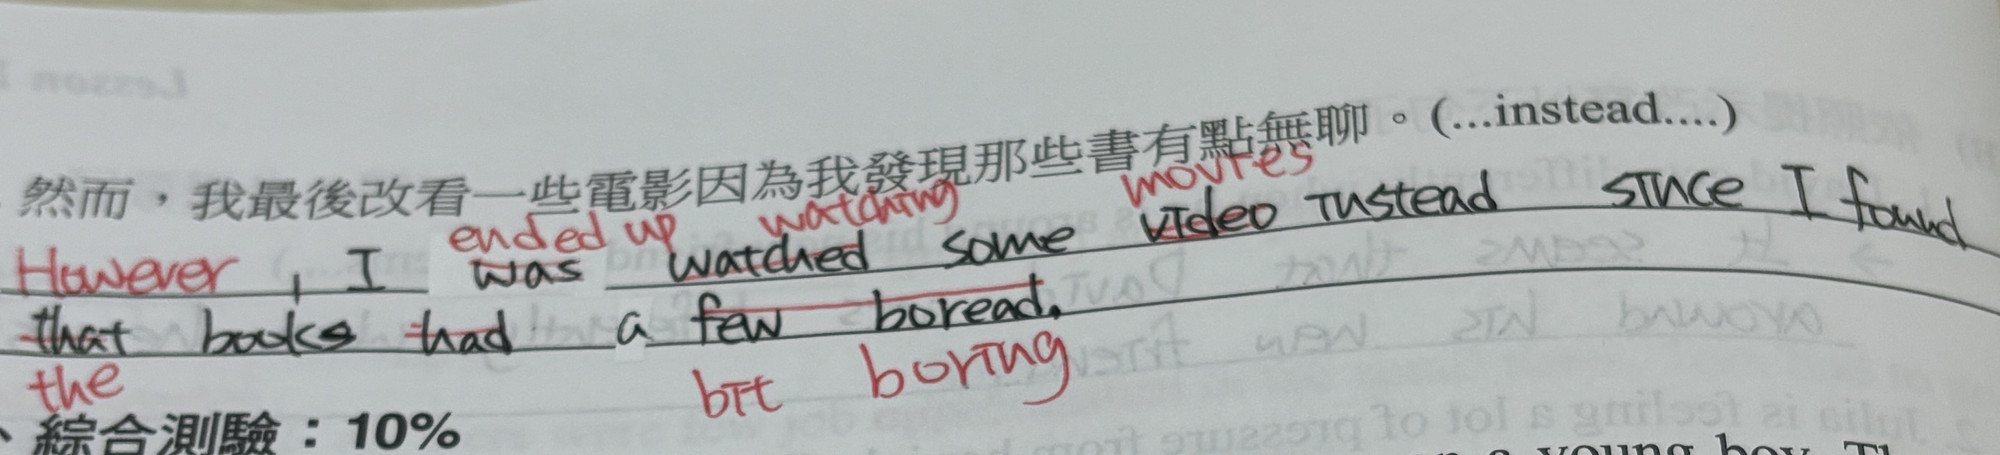 然而，我最後改看一些電影因為我發現那些書有點無聊。(...instead....)
ended up watching movies
However, I was watched some video instead since I found
that books had a few boread.
the bit boring
綜合測驗：10%